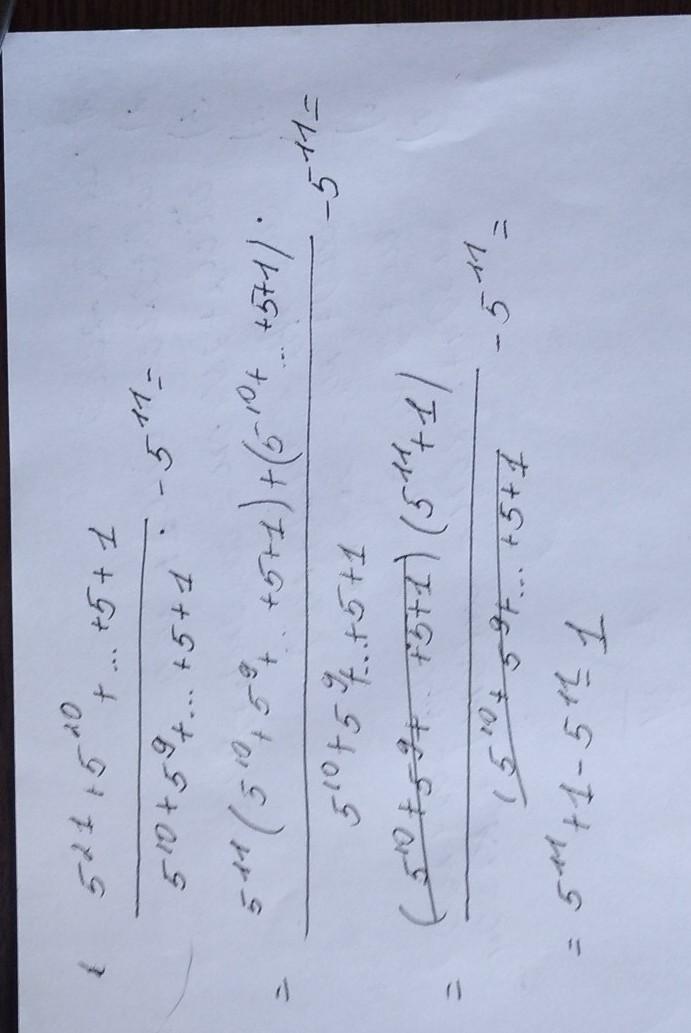 5²¹ + 5¹⁰ + ... + 5 + 1
5¹⁰ + 5⁹ + ... + 5 + 1 . - 5¹¹ =
= 5¹¹ ( 5¹⁰ + 5⁹ + ... + 5 + 1 ) + ( 5¹⁰ + ... + 5 + 1 ) .
5¹⁰ + 5⁹ + ... + 5 + 1 - 5¹¹ =
= ( 5¹⁰ + 5⁹ + ... + 5 + 1 ) ( 5¹¹ + 1 )
( 5¹⁰ + 5⁹ + ... + 5 + 1 - 5¹¹ =
= 5¹¹ + 1 - 5¹¹ = 1